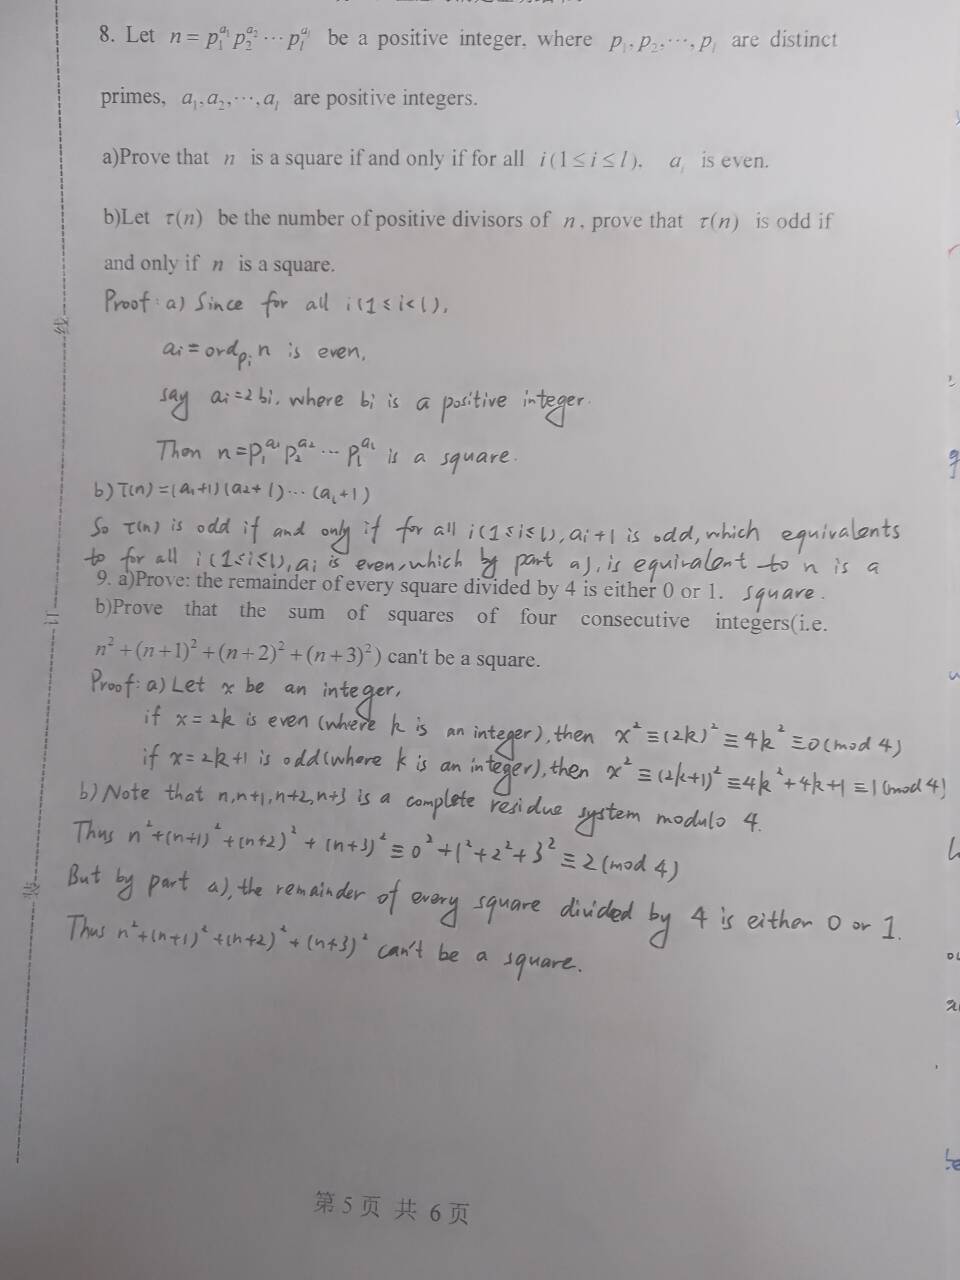 8. Let n = p₁^{a₁} p₂^{a₂} ⋯ p_l^{a_l} be a positive integer, where p₁, p₂, ⋯, p_l are distinct
primes, a₁, a₂, ⋯, a_l are positive integers.
a)Prove that n is a square if and only if for all i(1≤i≤l), a_i is even.
b)Let τ(n) be the number of positive divisors of n, prove that τ(n) is odd if
and only if n is a square.
Proof: a) Since for all i(1≤i<l),
a_i = ord_{p_i} n is even,
say a_i=2b_i, where b_i is a positive integer.
Then n=p₁^{a₁} p₂^{a₂} ⋯ p_l^{a_l} is a square.
b) τ(n)=(a₁+1)(a₂+1)⋯(a_l+1)
So τ(n) is odd if and only if for all i(1≤i≤l), a_i+1 is odd, which equivalents
to for all i(1≤i≤l), a_i is even, which by part a), is equivalent to n is a
square.
9. a)Prove: the remainder of every square divided by 4 is either 0 or 1.
b)Prove that the sum of squares of four consecutive integers(i.e.
n²+(n+1)²+(n+2)²+(n+3)²) can't be a square.
Proof: a) Let x be an integer,
if x=2k is even (where k is an integer), then x²≡(2k)²≡4k²≡0(mod 4)
if x=2k+1 is odd(where k is an integer), then x²≡(2k+1)²≡4k²+4k+1≡1(mod 4)
b) Note that n,n+1,n+2,n+3 is a complete residue system modulo 4.
Thus n²+(n+1)²+(n+2)²+(n+3)²≡0²+1²+2²+3²≡2(mod 4)
But by part a), the remainder of every square divided by 4 is either 0 or 1.
Thus n²+(n+1)²+(n+2)²+(n+3)² can't be a square.
第 5 页 共 6 页